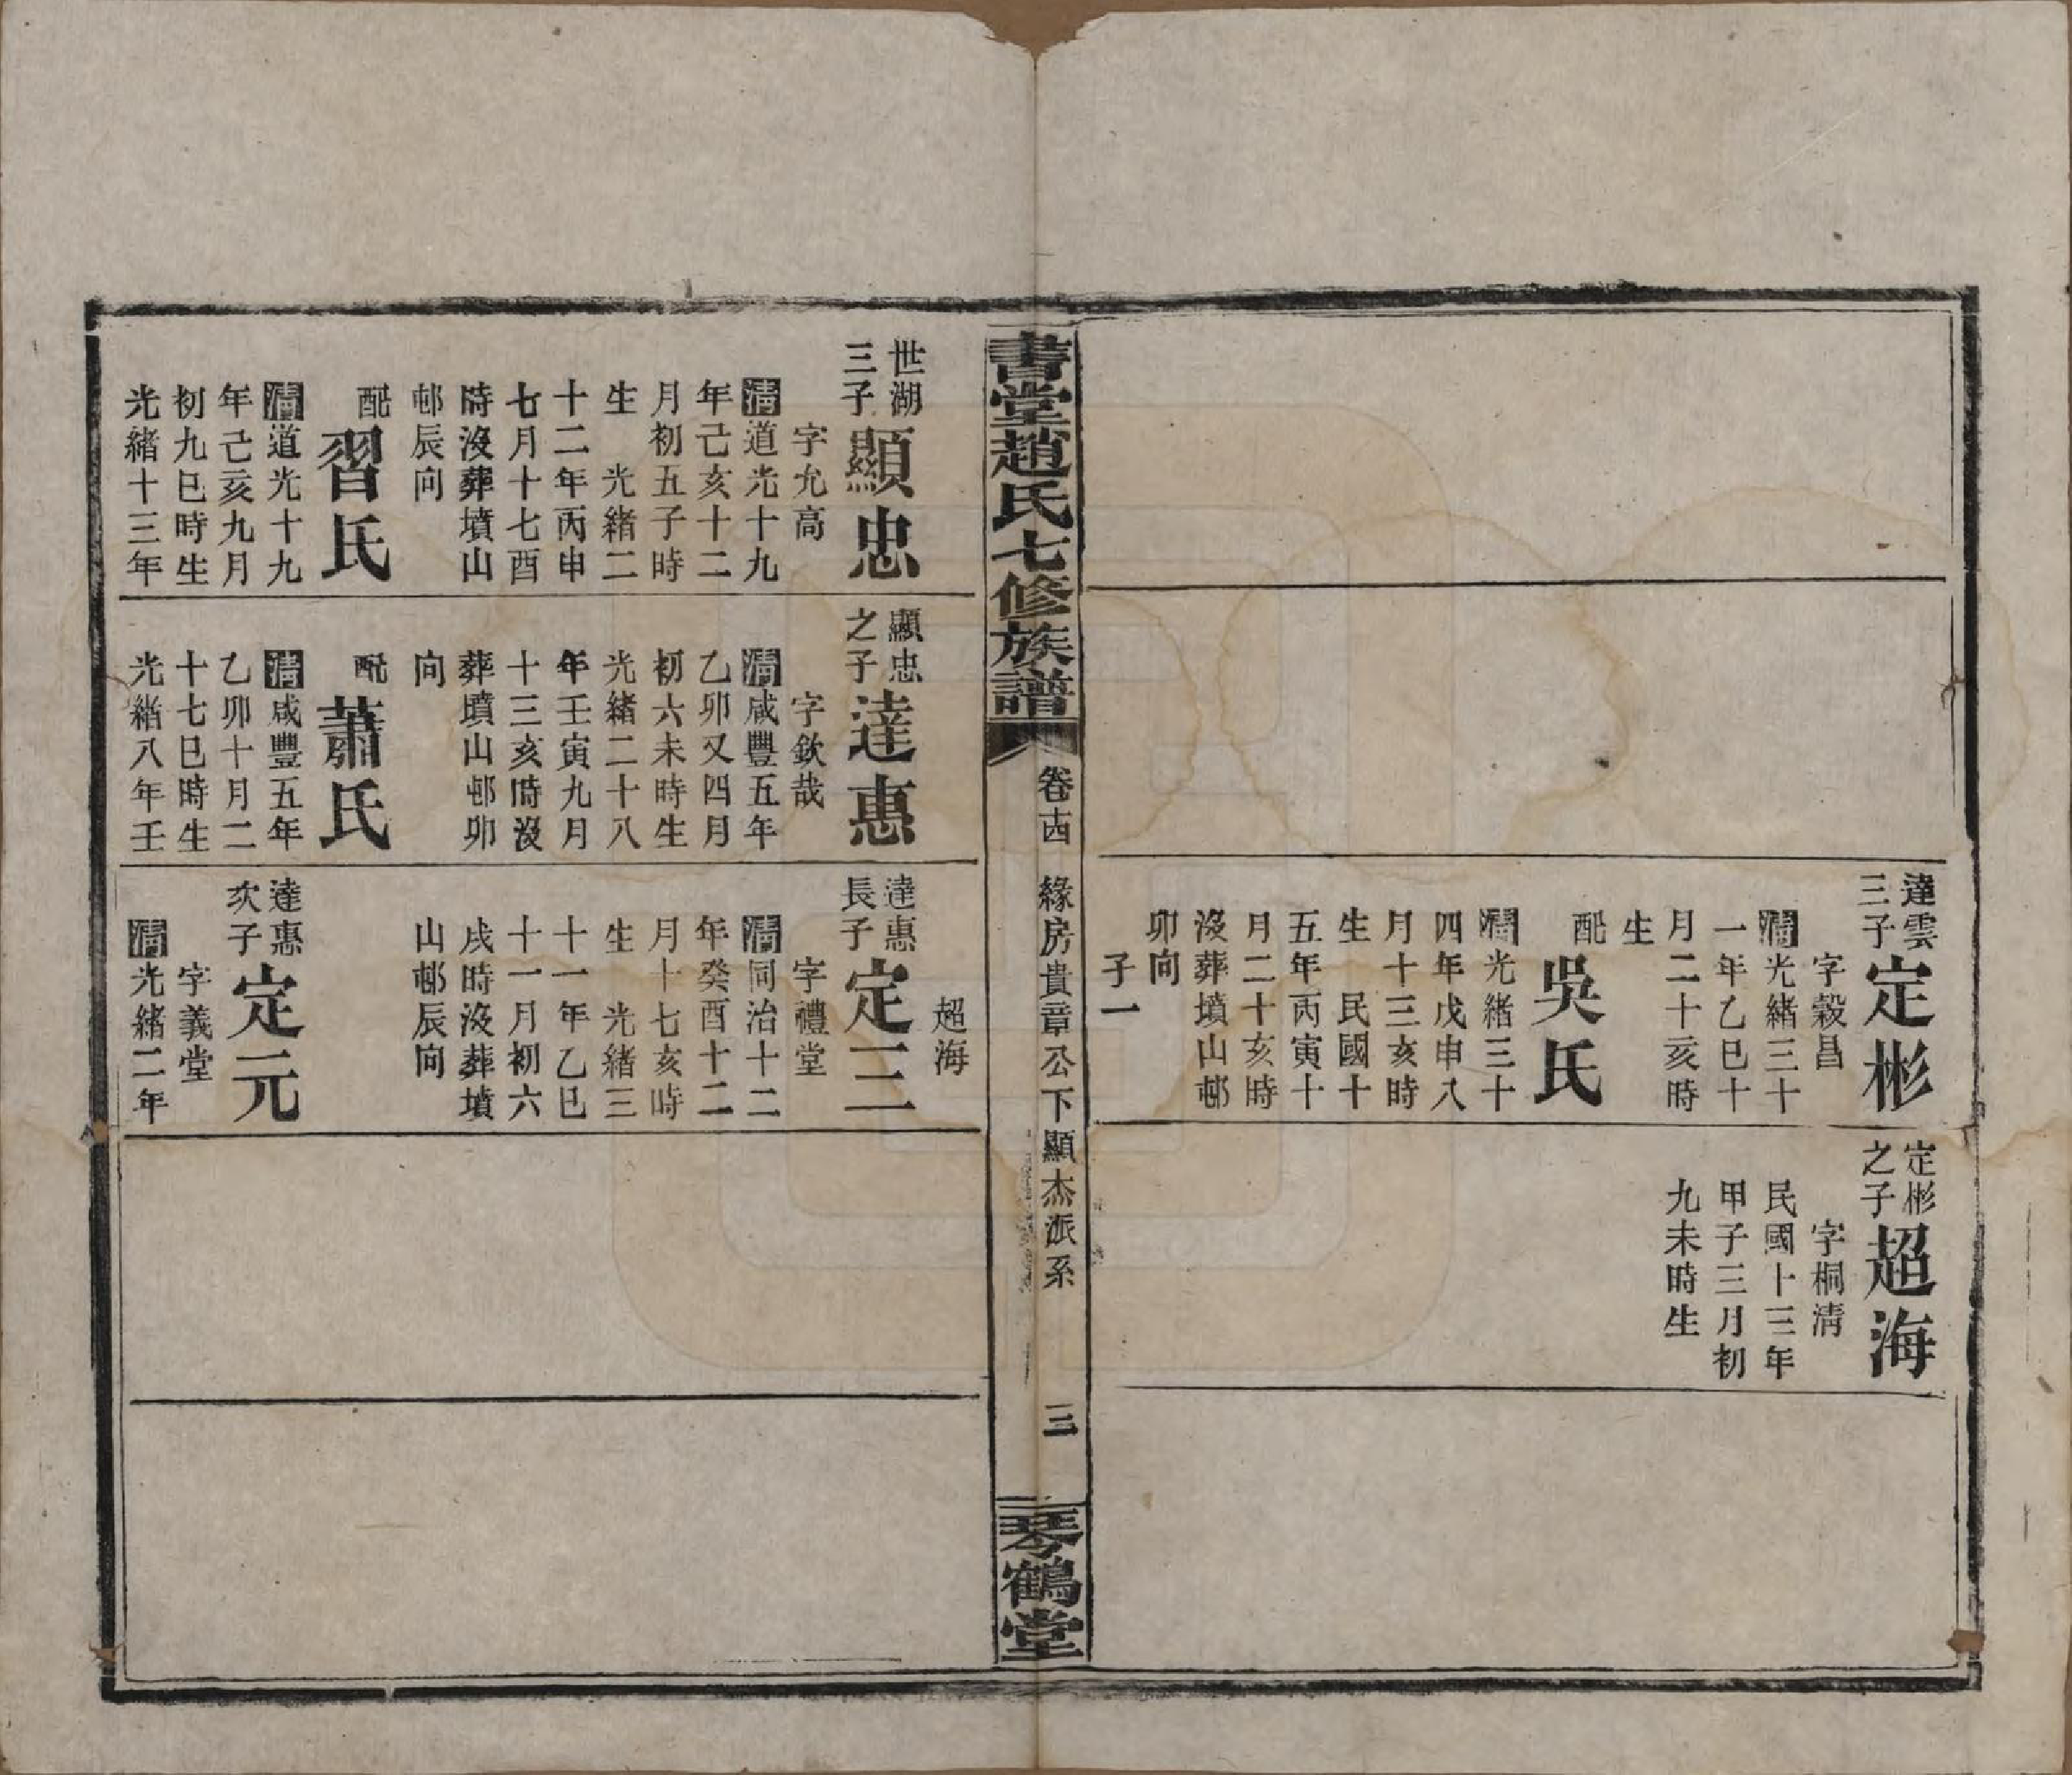 達雲
三子
定彬
字穀昌
清光緒三十
一年乙巳十
月二十亥時
生
配
吳氏
清光緒三十
四年戊申八
月十三亥時
生 民國十
五年丙寅十
月二十亥時
沒葬墳山邨
卯向
子一
超海
定彬
之子
超海
字桐清
民國十三年
甲子三月初
九未時生
書堂趙氏七修族譜
卷十四 緣房貴章公下顯杰派系
三
琴鶴堂
世湖
三子
顯忠
字允高
清道光十九
年己亥十二
月初五子時
生 光緒二
十二年丙申
七月十七酉
時沒葬墳山
邨辰向
配
習氏
清道光十九
年己亥九月
初九巳時生
光緒十三年
顯忠
之子
達惠
字欽哉
清咸豐五年
乙卯又四月
初六未時生
光緒二十八
年壬寅九月
十三亥時沒
葬墳山邨卯
向
配
蕭氏
清咸豐五年
乙卯十月二
十七巳時生
光緒八年壬
達惠
長子
定三
字禮堂
清同治十二
年癸酉十二
月十七亥時
生 光緒三
十一年乙巳
十一月初六
戌時沒葬墳
山邨辰向
達惠
次子
定元
字義堂
清光緒二年